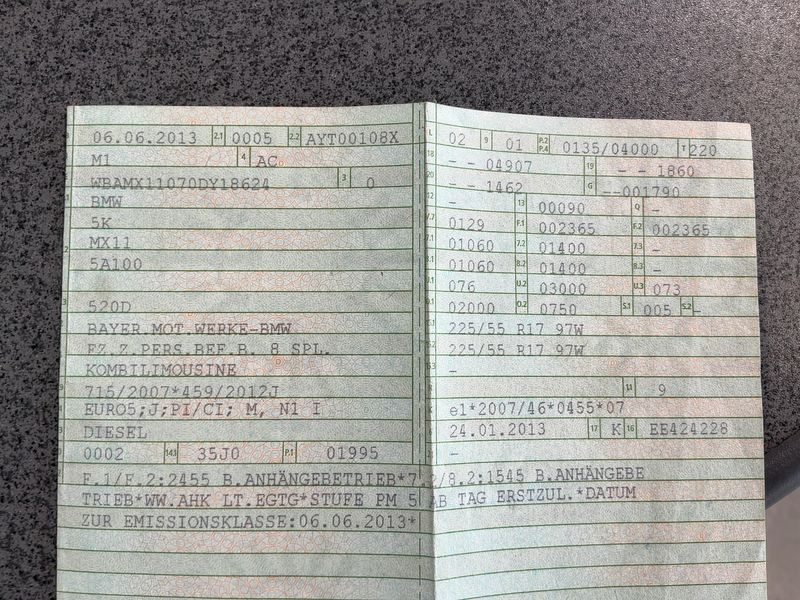 06.06.2013 2.1 0005 2.2 AYT00108X
M1 4 AC
WBAMX11070DY18624 3 0
BMW
5K
MX11
5A100
520D
BAYER.MOT.WERKE-BMW
FZ.Z.PERS.BEF.B. 8 SPL.
KOMBILIMOUSINE
715/2007*459/2012J
EURO5;J;PI/CI; M, N1 I
DIESEL
0002 14.1 35J0 P.1 01995
L 02 9 01 P.2 P.4 0135/04000 T 220
18 - - 04907 19 - - 1860
20 - - 1462 G --001790
12 - 13 00090 Q -
0129 F.1 002365 F.2 002365
7.1 01060 7.2 01400 7.3 -
8.1 01060 8.2 01400 8.3 -
U.1 076 U.2 03000 U.3 073
O.1 02000 O.2 0750 S.1 005 S.2 -
225/55 R17 97W
225/55 R17 97W
-
R 11 9
K e1*2007/46*0455*07
24.01.2013 17 K 16 EE424228
-
F.1/F.2:2455 B.ANHÄNGEBETRIEB*7.2/8.2:1545 B.ANHÄNGEBE
TRIEB*WW.AHK LT.EGTG*STUFE PM 5 AB TAG ERSTZUL.*DATUM
ZUR EMISSIONSKLASSE:06.06.2013*